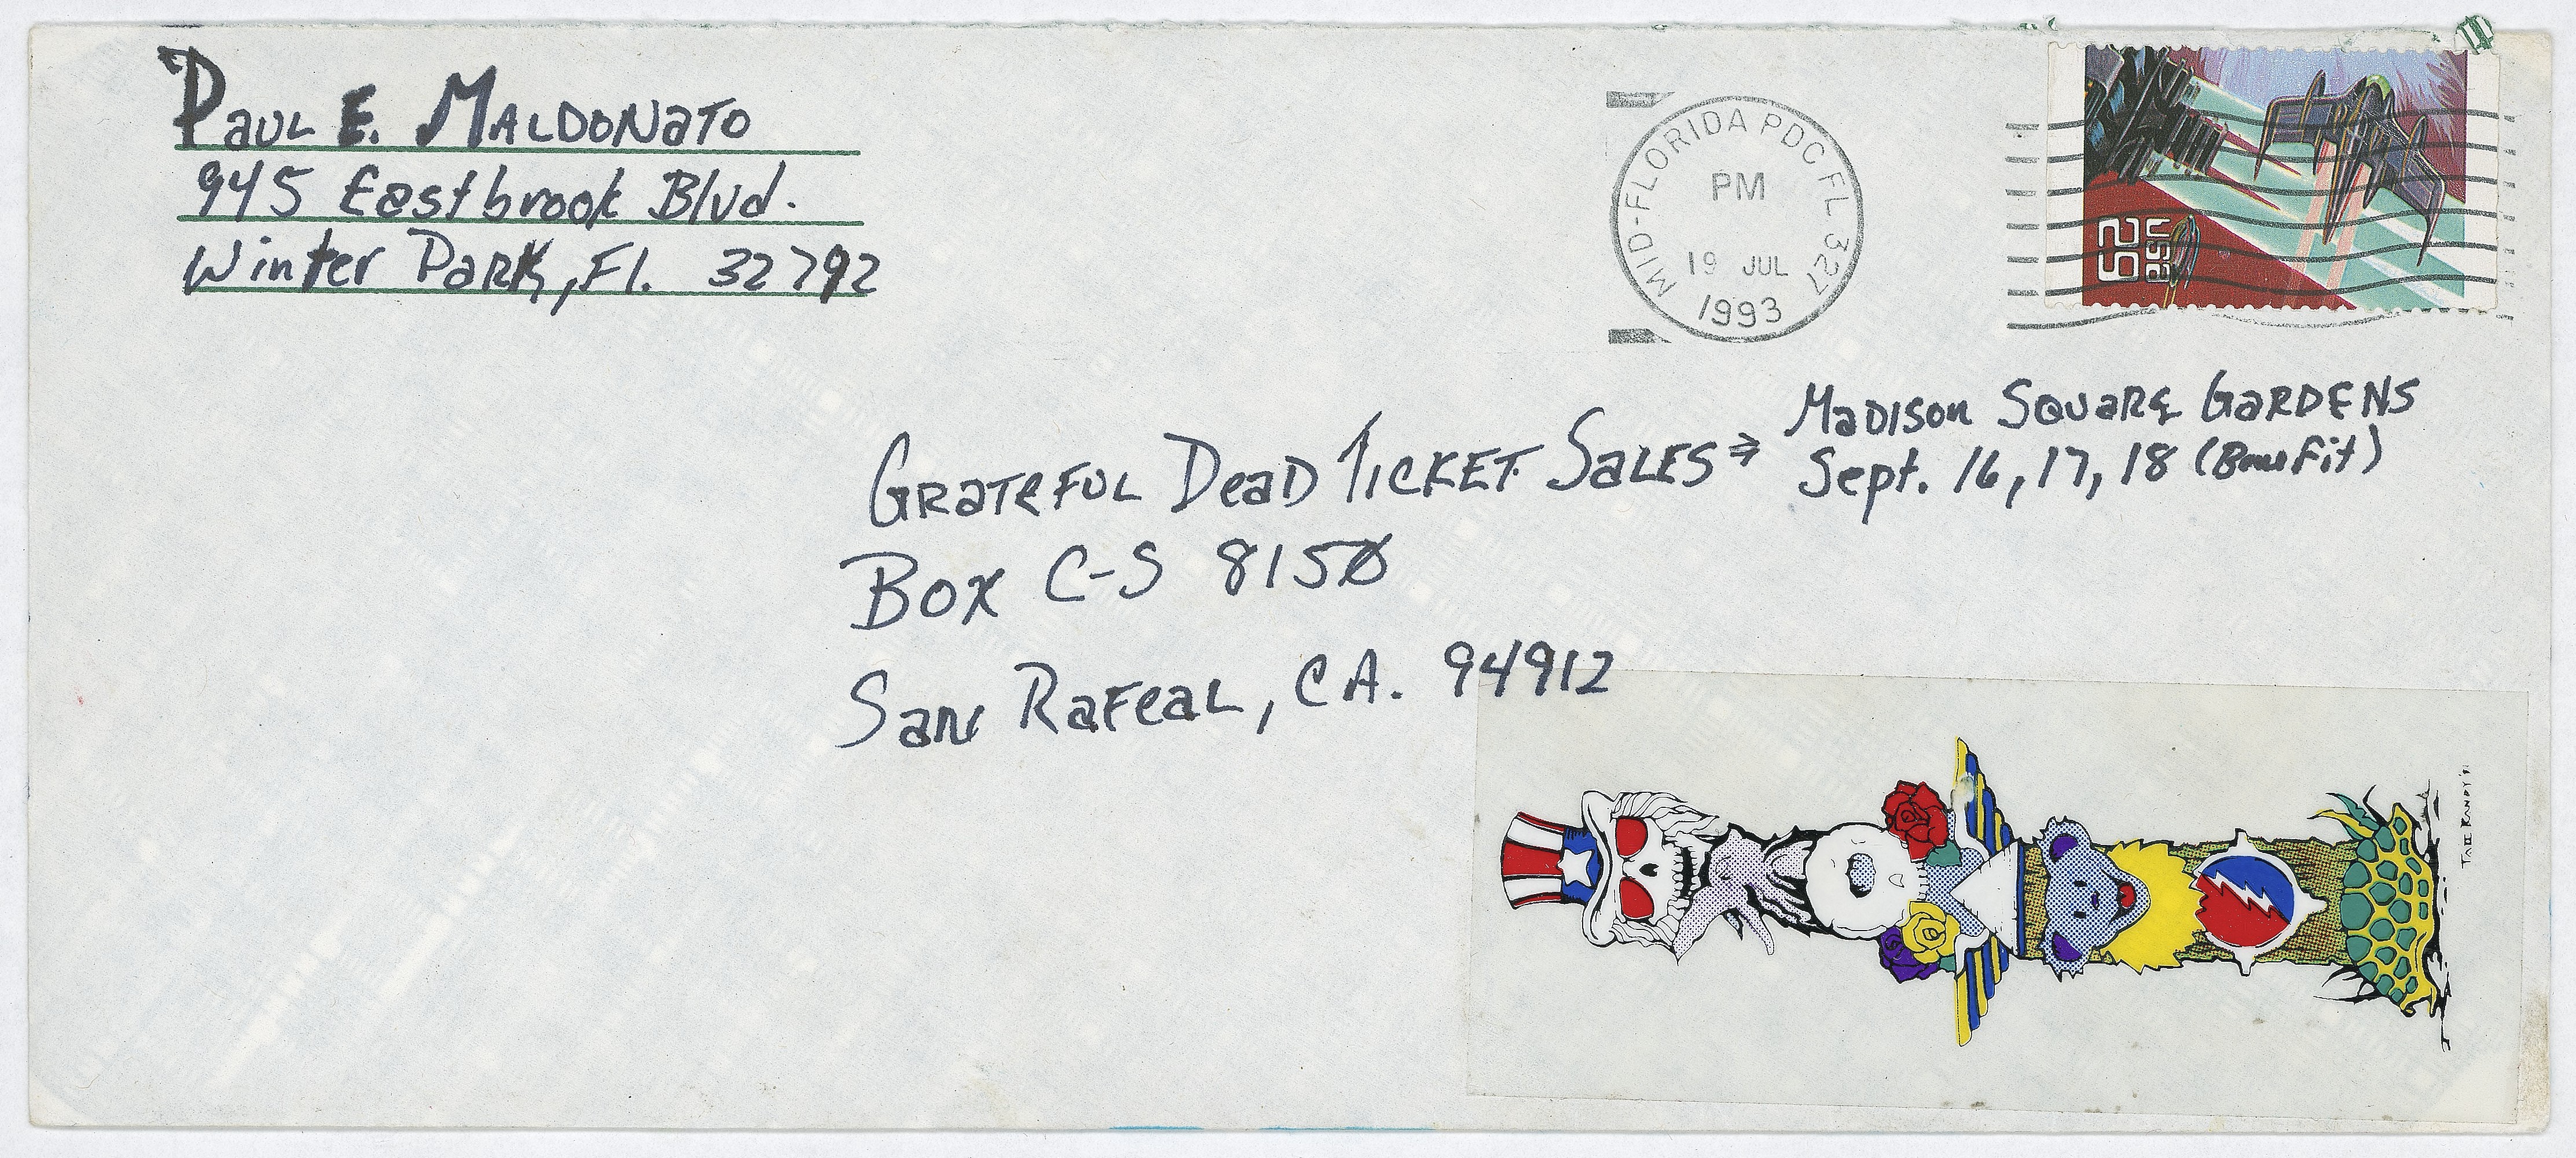 Paul E. Maldonato
945 Eastbrook Blvd.
Winter Park, Fl. 32792
MID-FLORIDA PDC FL 327
PM
19 JUL
1993
29
USA
Madison Square Gardens
Sept. 16, 17, 18 (Benefit)
Grateful Dead Ticket Sales ⇒
Box C-S 8150
San Rafeal, CA. 94912